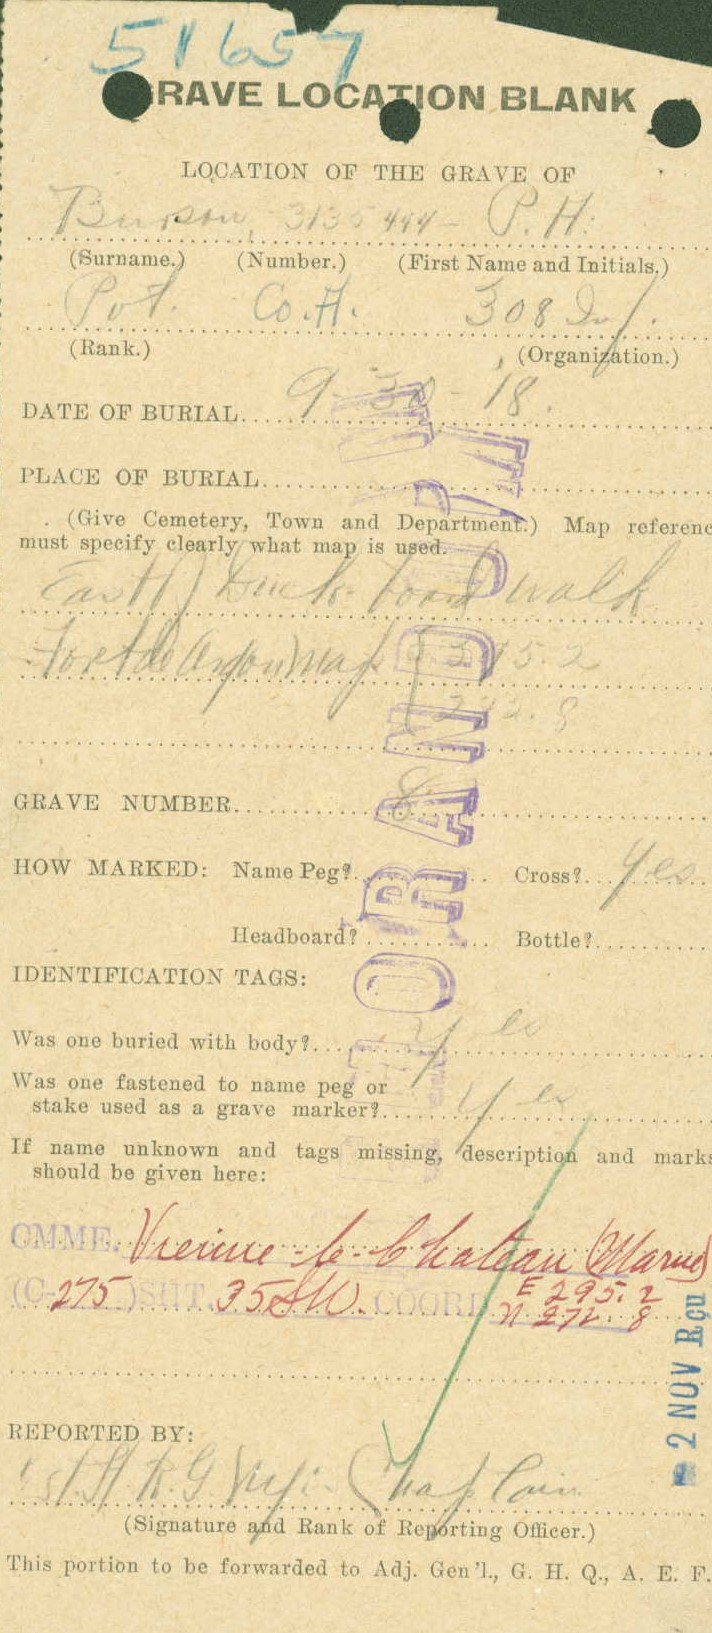 51657
GRAVE LOCATION BLANK
LOCATION OF THE GRAVE OF
Burson, 3135444 - P. H.
(Surname.) (Number.) (First Name and Initials.)
Pvt. Co. H. 308 Inf.
(Rank.) (Organization.)
DATE OF BURIAL.... 9-30-18.
PLACE OF BURIAL....
(Give Cemetery, Town and Department.) Map referenc
must specify clearly what map is used.
East of Duck board walk
Foret de Argonne map 295.2
272.8
GRAVE NUMBER.... 8
HOW MARKED: Name Peg?.... Cross?.... Yes
Headboard?.... Bottle?....
IDENTIFICATION TAGS:
Was one buried with body?.... Yes
Was one fastened to name peg or
stake used as a grave marker?.... Yes
If name unknown and tags missing, description and marks
should be given here:
CMME. Vienne-le-Chateau (Marne)
(C-275) SHT. 35 COORD. E 295.2
N 272.8
2 NOV Rçu
REPORTED BY:
1st Lt R. G. Chaplain
(Signature and Rank of Reporting Officer.)
This portion to be forwarded to Adj. Gen'l., G. H. Q., A. E. F.
MEMORANDUM